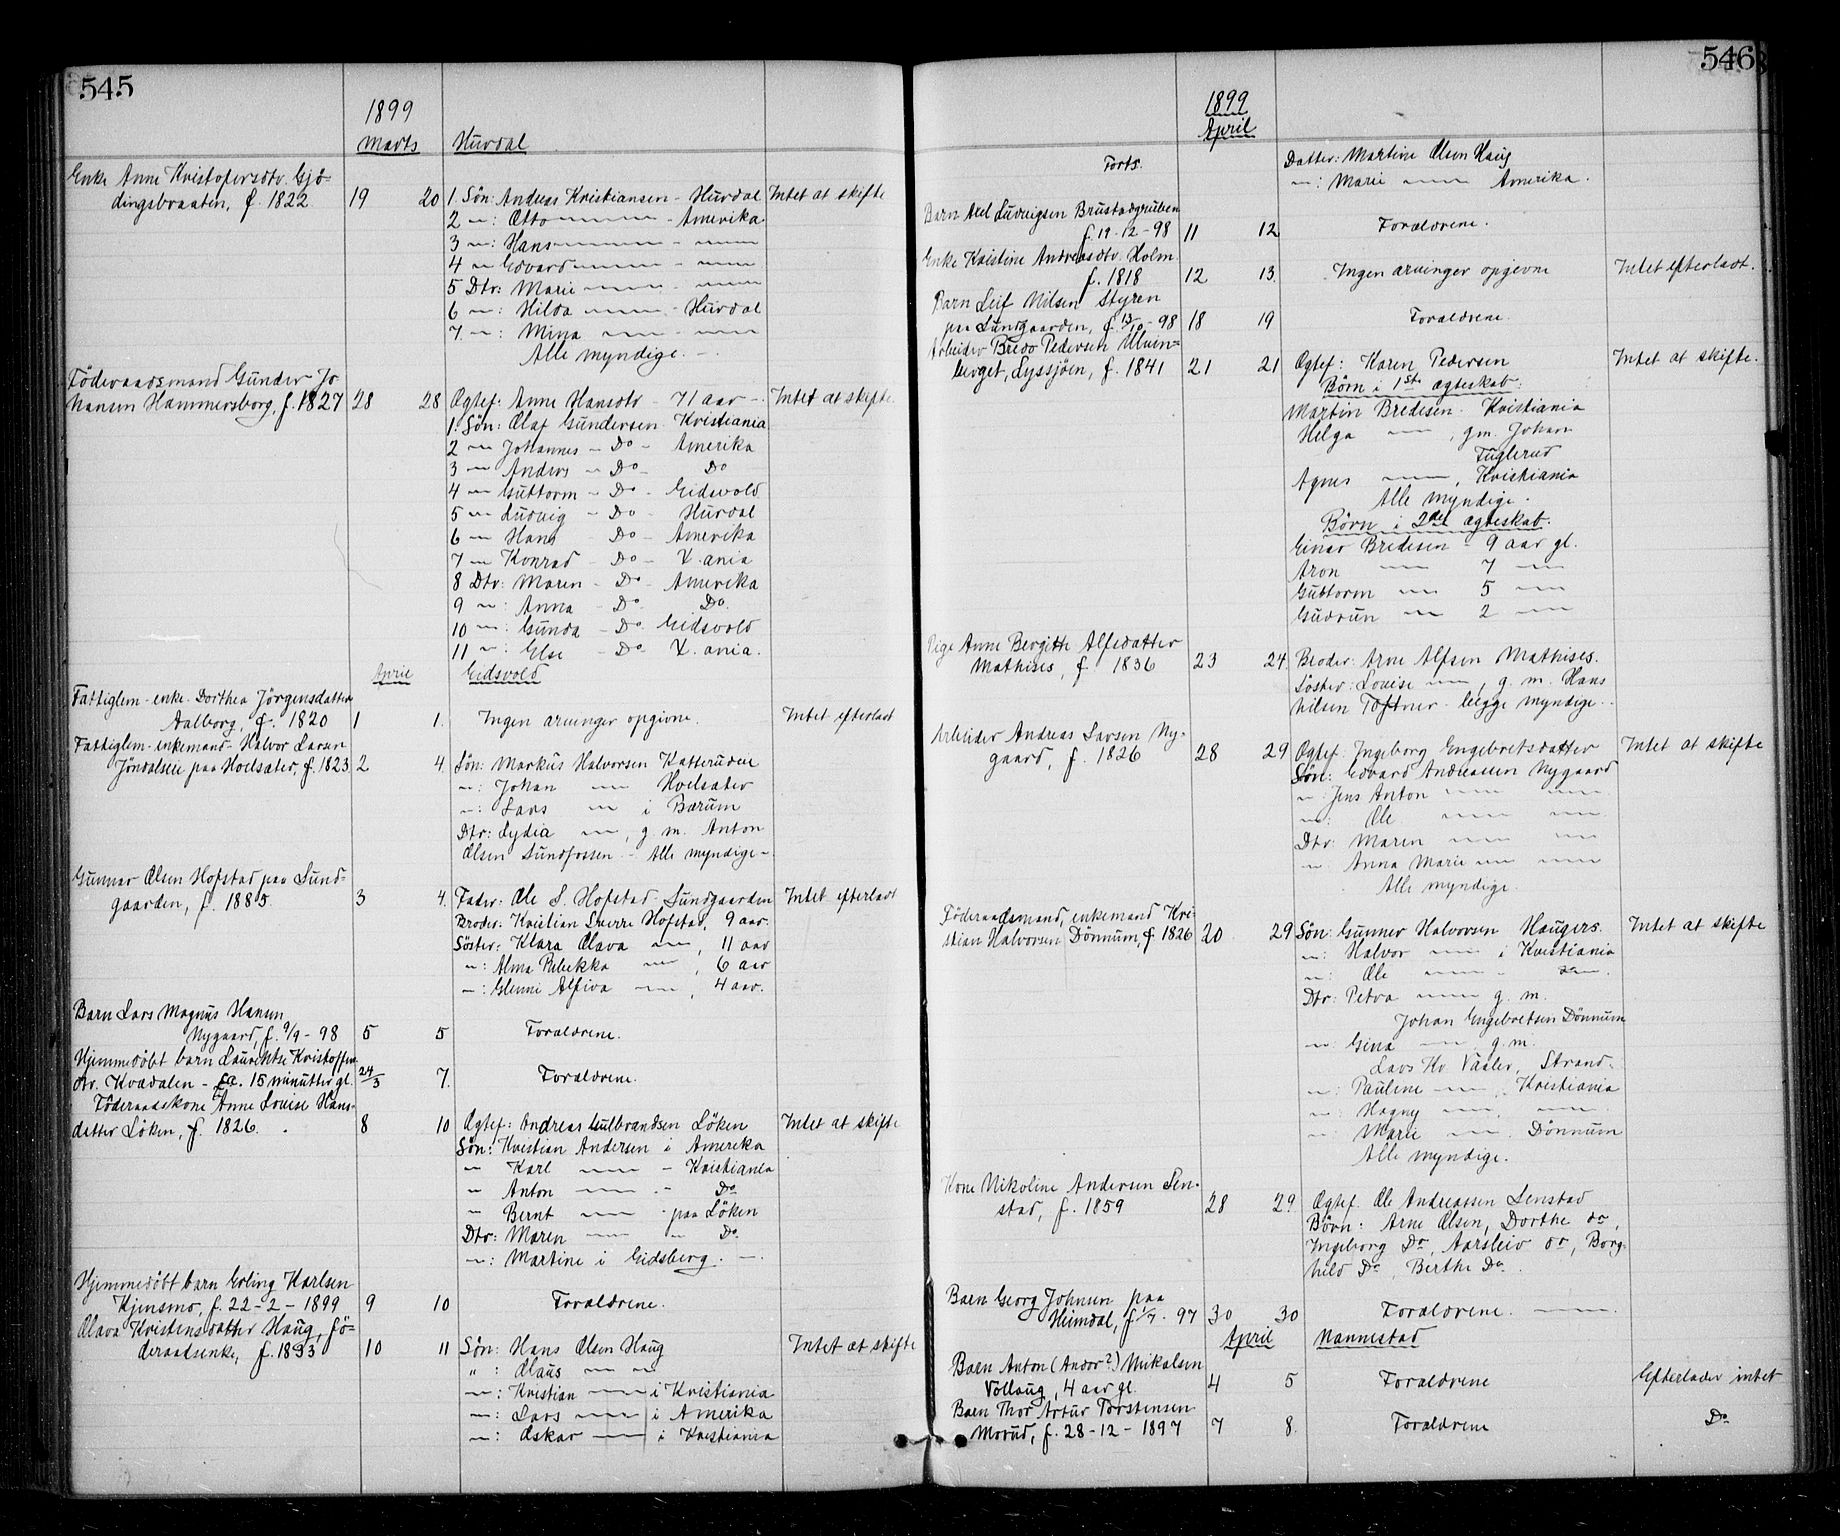 545
1899
Marts Hurdal
Enke Anne Kristofersdtr. Gjö-
dingsbraaten, f. 1822 19 20 1. Sön: Andreas Kristiansen - Hurdal Intet at skifte
2 -"-: Otto -"- - Amerika
3 -"-: Hans -"- - -"-
4 -"- Edvard -"- - -"-
5 Dtr: Marie -"- - -"-
6 -"-: Hilda -"- - Hurdal
7 -"-: Mina -"- - -"-
Alle myndige. -
Föderaadsmand Gunder Jo
hansen Hammersborg, f. 1827 28 28 Ægtef: Anne Hansdtr - 71 aar - Intet at skifte.
1. Sön: Olaf Gundersen Kristiania
2 -"- Johannes - Do - Amerika
3 -"- Anders - Do - Do
4 -"- Guttorm - Do - Eidsvold
5 -"- Ludvig - Do - Hurdal
6 -"- Hans - Do - Amerika
7 -"- Konrad - Do - X.ania
8 Dtr: Maren - Do - Amerika
9 -"-: Anna - Do Do.
10 -"-: Gunda - Do Eidsvold
11 -"-: Else - Do X.ania.
April Eidsvold
Fattiglem-enke Dorthea Jörgensdatter
Aalborg, f. 1820 1 1. Ingen arvinger opgivne. Intet efterladt
Fattiglem-enkemand Halvor Larsen
Jöndalseie paa Hoelsæter, f. 1823 2 4. Sön: Markus Halvorsen Katterudeie
-"-: Johan -"- Hoelsæter
-"-: Lars -"- i Bærum
Dtr: Lydia -"-, g. m. Anton
Olsen Sundfossen. - Alle myndige -
Gunnar Olsen Hofstad paa Sund-
gaarden, f. 1885. 3 4. Fader: Ole S. Hofstad Sundgaarden Intet efterladt
Broder: Kristian Sverre Hofstad, 9 aar.
Söster: Klara Olava -"-, 11 aar
-"-: Alma Rebekka -"-, 6 aar
-"-: Glenni Alfiva -"-, 4 aar.
Barn Lars Magnus Hansen
Nygaard, f. 9/9 - 98 5 5 Forældrene.
Hjemmedöbt barn Laurentse Kristoffer
dtr. Kvædalen - ca. 15 minutter gl. 24/3 7. Forældrene.
Föderaadskone Anne Louise Hans-
datter Löken, f. 1826. 8 10 Ægtef: Andreas Gulbrandsen Löken Intet at skifte
Sön: Kristian Andersen i Amerika
-"- Karl -"- - Kristiania
-"- Anton -"- - Do
-"- Bernt -"- - paa Löken
Dtr: Maren -"- - Do
-"-: Martine i Eidsberg. -
Hjemmedöbt barn Erling Karlsen
Hjensmo, f. 22-2-1899 9 10 Forældrene.
Olava Kristensdatter Haug, fö-
deraadsenke, f. 1833 10 11 Sön: Hans Olsen Haug Intet at skifte
" : Claus -"- -"-
-"-: Kristian -"- i Kristiania
-"-: Lars -"- i Amerika
-"-: Oskar -"- i Kristiania
546
1899
April
Forts. Datter: Martine Olsen Haug
-"-: Marie -"- Amerika.
Barn Axel Ludvigsen Brustadgruben
f. 19-12-98 11 12 Forældrene.
Enke Kristine Andreasdtr. Holm
f. 1818 12 13. Ingen arvinger opgivne Intet efterladt.
Barn Leif Nilsen Styren
paa Sundgaarden, f. 13/10-98 18 19 Forældrene.
Arbeider Bredo Pedersen Ulvin-
berget, Lyssjöen, f. 1841 21 21 Ægtef: Karen Pedersen Intet at skifte.
Börn i 1ste ægteskab:
Martin Bredesen Kristiania
Helga -"-, gm. Johan
Fuglerud
Agnes -"-, Kristiania
Alle myndige.
Börn i 2det ægteskab:
Einar Bredesen - 9 aar gl.
Aron -"- 7 -"-
Guttorm -"- 5 -"-
Gudrun -"- 2 -"-
Pige Anne Bergitte Alfsdatter
Mathises, f. 1836 23 24. Broder: Arne Alfsen Mathises.
Söster: Louise -"-, g. m. Hans
Nilsen Toftner - begge myndige.
Arbeider Andreas Larsen Ny-
gaard, f. 1826 28 29 Ægtef. Ingeborg Engebretsdatter Intet at skifte
Sön: Edvard Andreassen Nygaard
-"-: Jens Anton -"- -"-
-"-: Ole -"- -"-
Dtr: Maren -"- -"-
-"-: Anna Marie -"- -"-
Alle myndige.
Föderaadsmand, enkemand Kri-
stian Halvorsen Dönnum, f. 1826 20 29 Sön: Gunner Halvorsen Haugers. Intet at skifte
-"-: Halvor -"- i Kristiania
-"-: Ole -"- - -"-.
Dtr: Petra -"- g. m.
Johan Engebretsen Dönnum
-"-: Gina -"- g. m.
Lars Hv. Vaaler, Strand.
-"-: Pauline -"-. Kristiania
-"-: Hagny -"-. -"-.
-"-: Marie -"-. Dönnum
Alle myndige.
Kone Nikoline Andersen Sen-
stad, f. 1859 28 29. Ægtef. Ole Andreassen Senstad
Börn: Arne Olsen, Dorthe do,
Ingeborg Do, Aarsleiv do, Borg-
hild Do, Berthe Do.
Barn Georg Johnsen paa
Heimdal, f. 1/7. 97 30 30 Forældrene.
April Nannestad
Barn Anton (Andor?) Mikalsen
Vollaug, 4 aar gl. 4 5 Forældrene Efterlader intet
Barn Thor Artur Torstensen
Morud, f. 28-12-1897 7 8. Forældrene Do